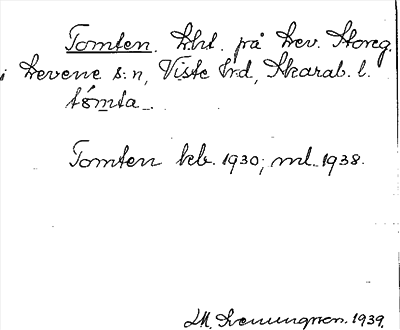 Tomten. Lht. på Lev. Storeg.
i Levene s:n, Viste hrd, Skarab. l.
tómta.
Tomten kb. 1930; ml. 1938.
1939.